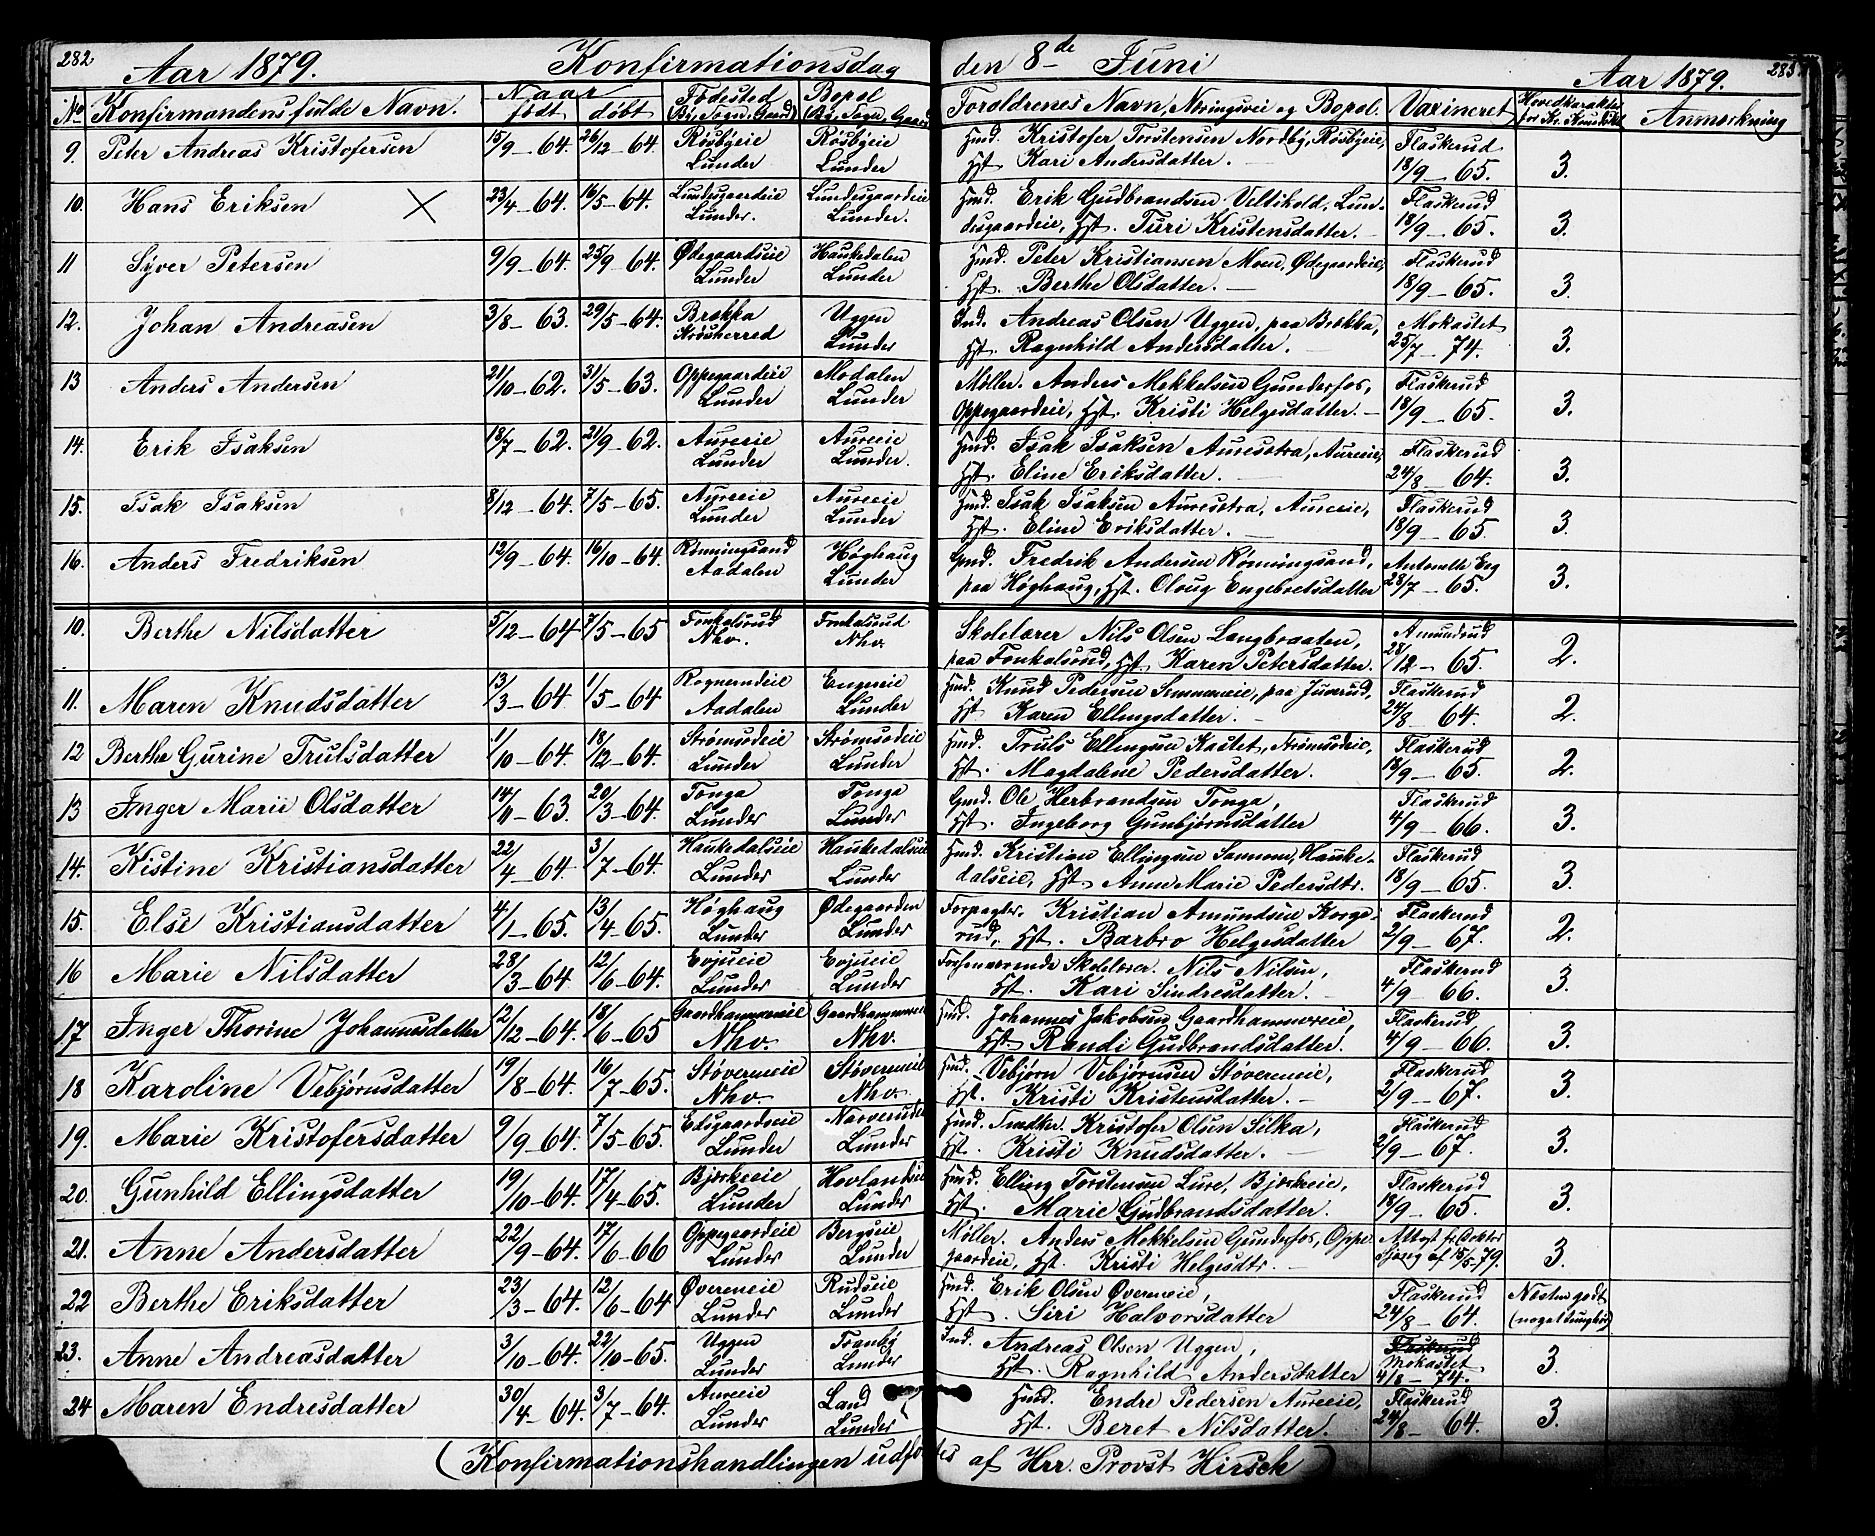 282
Aar 1879. Konfirmationsdag den 8de Juni Aar 1879. 283
No Konfirmandens fulde Navn. Naar født døbt Fødested (By, Sogn, Gaard) Bopel (By, Sogn, Gaard) Foreldrenes Navn, Næringsvei og Bopel. Vaxineret Hovedkarakter for Kr. Kundskab Anmerkning
9. Peter Andreas Kristofersen 15/9-64. 26/12-64. Røsbyeie Røsbyeie Hmd. Kristofer Torstensen Nordby, Røsbyeie, Flaskerud
Lunder Lunder Hst. Kari Andersdatter. 18/9-65. 3.
10. Hans Eriksen × 23/4-64. 16/5-64. Lundesgaardeie Lundesgaardeie Hmd. Erik Gudbrandsen Veltihold, Lun- Flaskerud
Lunder. Lunder. desgaardeie, Hst. Turi Kristensdatter. 18/9-65. 3.
11 Syver Petersen 9/9-64. 25/9-64. Ødegaardseie Haukedalen Hmd. Peter Kristiansen Moen, Ødegaardeie, Flaskerud
Lunder Lunder Hst. Berthe Olsdatter. 18/9-65. 3.
12. Johan Andreasen 3/8-63. 29/5-64. Brekka Uggen Ind. Andreas Olsen Uggen, paa Brekka, Mokastet
Krøsherred Lunder Hst. Ragnhild Andersdatter. 25/7-74. 3.
13 Anders Andersen 21/10-62. 31/5-63. Oppegaardeie Modalen Møller. Anders Mekkelsen Gunderfos, Flaskerud
Lunder Lunder Oppegaardeie, Hst. Kristi Helgesdatter. 18/9-65. 3.
14. Erik Isaksen 18/7-62. 21/9-62. Aureeie Aureeie Hmd. Isak Isaksen Auresetra, Aureeie, Flaskerud
Lunder Lunder. Hst. Eline Eriksdatter. 24/8-64. 3.
15. Isak Isaksen 8/12-64. 7/5-65. Aureeie Aureeie Hmd. Isak Isaksen Auresetra, Aureeie, Flaskerud
Lunder Lunder Hst. Eline Eriksdatter. 18/9-65. 3.
16. Anders Fredriksen 12/9-64. 16/10-64. Rønningsand Høghaug Gmd. Fredrik Andersen Rønningsand, Antonette Eeg
Aadalen Lunder paa Høghaug, Hst. Oloug Engebretsdatter 28/7-65. 3.
10. Berthe Nilsdatter 5/12-64 7/5-65 Fonkalsrud Fonkalsrud Skolelærer Nils Olsen Langbraaten, Amundrud
Nho. Nho. paa Fonkalsrud, Hst. Karen Petersdatter. 28/12-65. 2.
11. Maren Knudsdatter 13/3-64 1/5-64 Rognerudeie Engereie Hmd. Knud Pedersen Semmeneie, paa Juverud, Flaskerud
Aadalen Lunder Hst Karen Ellingsdatter. 24/8-64. 2.
12 Berthe Gurine Trulsdatter 1/10-64. 18/12-64. Strømsødeie Strømsødeie Hmd. Truls Ellingsen Kastet, Strømsødeie, Flaskerud
Lunder Lunder Hst. Magdalene Pedersdatter. 18/9-65. 2.
13 Inger Marie Olsdatter 14/11-63. 20/3-64. Tonga Tonga Gmd. Ole Herbrandsen Tonga, Flaskerud
Lunder Lunder Hst. Ingeborg Gunbjørnsdatter 4/9-66. 3.
14. Kistine Kristiansdatter 22/4-64. 3/7-64. Haukedalseie Haukedalseie Hmd. Kristian Ellingsen Sannom, Hauke- Flaskerud
Lunder Lunder dalseie, Hst. Anne Marie Pedersdtr. 18/9-65. 3.
15. Else Kristiansdatter 4/1-65. 13/4-65. Høghaug Ødegaarden Forpagter. Kristian Amundsen Korge- Flaskerud
Lunder Lunder rud, Hst. Barbro Helgesdatter 2/9-67. 2.
16 Marie Nilsdatter 28/3-64 12/6-64. Evjueie Evjueie Forhenværende Skolelærer. Nils Nilsen, Flaskerud
Lunder Lunder Hst. Kari Sindresdatter. 4/9-66. 3.
17 Inger Thorine Johannesdatter 12/12-64. 18/6-65 Gaardhammereie Gaardhammereie Hmd. Johannes Jakobsen Gaardhammereie, Flaskerud
Nho. Nho. Hst. Randi Gudbrandsdatter. 4/9-66. 3.
18 Karoline Vebjørnsdatter 19/8-64. 16/7-65. Støvereneie Støvereneie Hmd. Vebjørn Vebjørnsen Støvereneie, Flaskerud
Nho. Nho. Hst. Kristi Kristensdatter. 2/9-67. 3.
19. Marie Kristofersdatter 9/9-64. 7/5-65. Edsgaardseie Narverudeie Hmd. Snedker. Kristofer Olsen Silka, Flaskerud
Lunder Lunder Hst. Kristi Knudsdatter. 2/9-67. 3.
20. Gunhild Ellingsdatter 19/10-64. 17/4-65. Bjerkeeie Hovlandseie Hmd. Elling Torstensen Lure, Bjerkeie, Flaskerud
Lunder Lunder Hst. Marie Gudbrandsdatter. 18/9-65. 3.
21. Anne Andersdatter 22/9-64. 17/6-66 Oppegaardeie Bergseie Møller. Anders Mekkelsen Gunderfos, Oppe- Attest fr. Doktor
Lunder Lunder gaardeie, Hst. Kristi Helgesdtr. Hjang af 15/5-79. 3.
22 Berthe Eriksdatter 23/3-64. 12/6-64 Øvereneie Rudseie Hmd. Erik Olsen Øvereneie, Flaskerud Nesten godt
Lunder Lunder Hst. Siri Halvorsdatter 24/8-64. (noget tunghør)
23. Anne Andreasdatter 3/10-64. 22/10-65. Uggen Tranby Ind. Andreas Olsen Uggen, Flaskerud
Lunder Lunder Hst. Ragnhild Andersdatter Mokastet 4/8-74. 3.
24 Maren Endresdatter 30/4-64. 3/7-64. Aureeie Land Hmd. Endre Pedersen Aureeie, Flaskerud
Lunder Lunder Hst. Beret Nilsdatter. 24/8-64. 3.
(Konfirmationshandlingen udførtes af Hrr. Provst Hirsch)